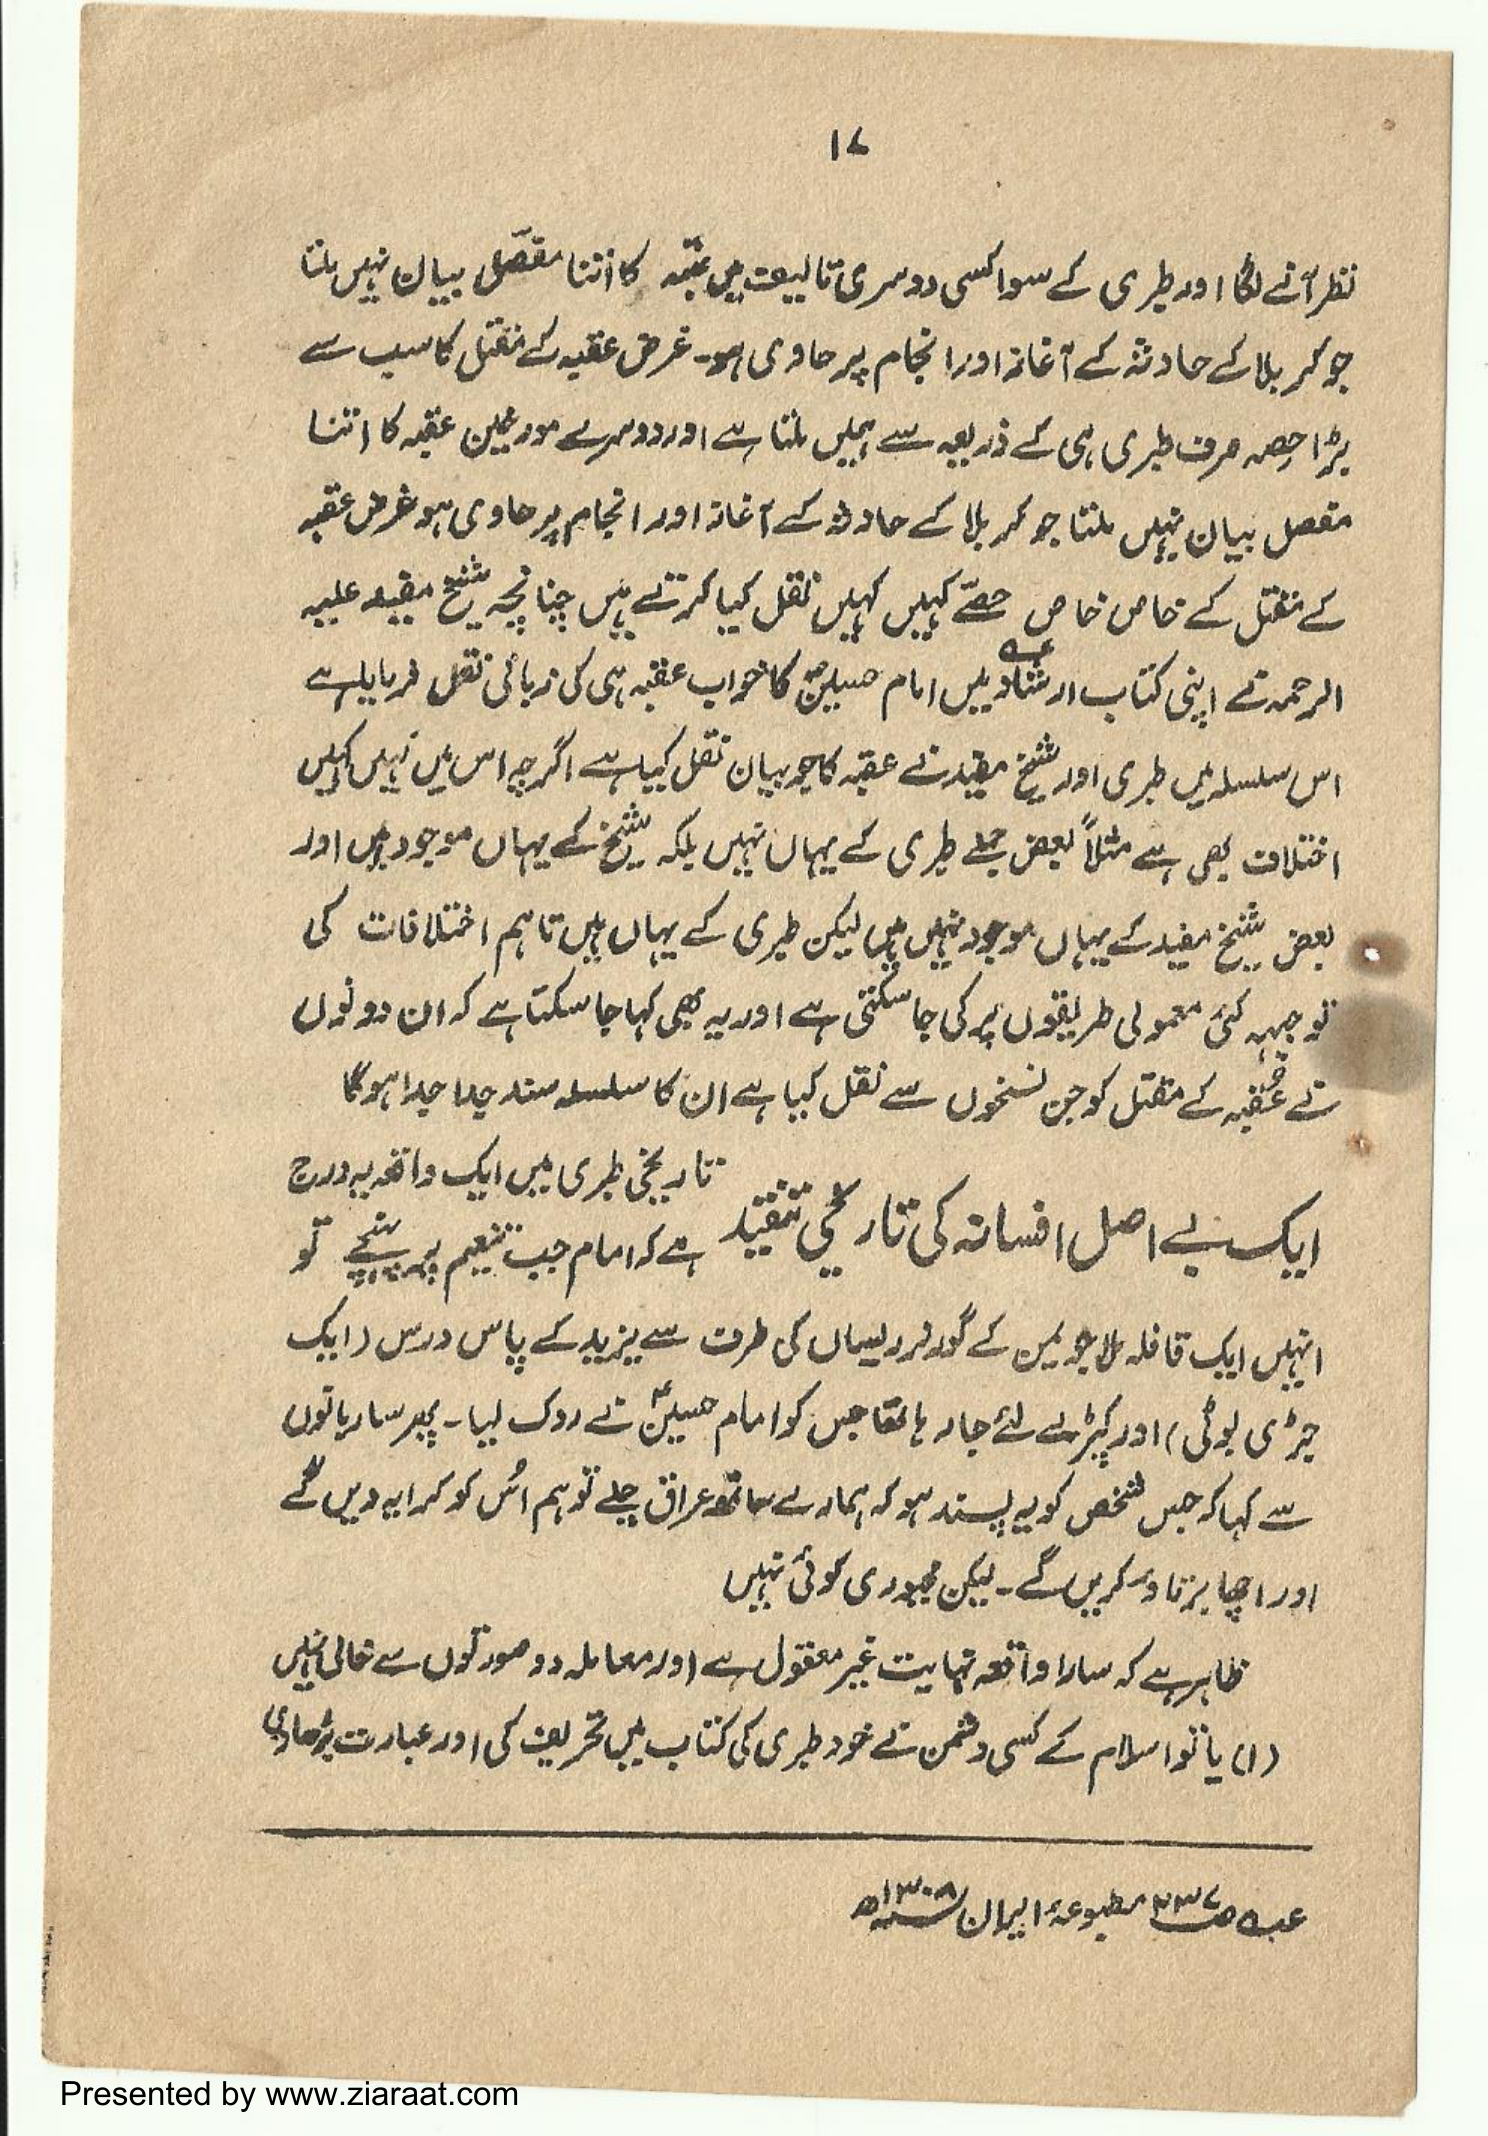 ۱۷
نظر آنے لگا اور طبری کے سوا کسی دوسری تالیف میں عقبہ کا اتنا مفصّل بیان نہیں ملتا
جو کربلا کے حادثہ کے آغاز اور انجام پر حاوی ہو۔ غرض عقبہ کے مقتل کا سب سے
بڑا حصہ صرف طبری ہی کے ذریعہ سے ہمیں ملتا ہے اور دوسرے مورخین عقبہ کا اتنا
مفصل بیان نہیں ملتا جو کربلا کے حادثہ کے آغاز اور انجام پر حاوی ہو غرض عقبہ
کے مقتل کے خاص خاص حصّے کہیں کہیں نقل کیا کرتے ہیں چنانچہ شیخ مفید علیہ
الرحمہ نے اپنی کتاب ارشاد عہ میں امام حسینؑ کا خواب عقبہ ہی کی زبانی نقل فرمایا ہے
اس سلسلہ میں طبری اور شیخ مفید نے عقبہ کا جو بیان نقل کیا ہے اگرچہ اس میں نہیں کہیں
اختلاف بھی ہے مثلاً بعض جملے طبری کے یہاں نہیں بلکہ شیخ کے یہاں موجود ہیں اور
بعض شیخ مفید کے یہاں موجود نہیں ہیں لیکن طبری کے یہاں ہیں تاہم اختلافات کی
توجیہہ کئی معمولی طریقوں پر کی جا سکتی ہے اور یہ بھی کہا جا سکتا ہے کہ ان دونوں
نے عُقبہ کے مقتل کو جن نسخوں سے نقل کیا ہے ان کا سلسلہ سند جدا جدا ہوگا
ایک بے اصل افسانہ کی تاریخی تنقید
تاریخی طبری میں ایک واقعہ یہ درج
ہے کہ امام جب تنعیم پر پہنچے تو
انہیں ایک قافلہ ملا جو یمن کے گورنر ریسان کی طرف سے یزید کے پاس ورس (ایک
جڑی بوٹی) اور کپڑے لئے جا رہا تھا جس کو امام حسینؑ نے روک لیا۔ پھر ساربانوں
سے کہا کہ جس شخص کو یہ پسند ہو کہ ہمارے ساتھ عراق چلے تو ہم اُس کو کرایہ دیں گے
اور اچھا برتاؤ کریں گے۔ لیکن مجبوری کوئی نہیں
ظاہر ہے کہ سارا واقعہ نہایت غیر معقول ہے اور معاملہ دو صورتوں سے خالی نہیں
(۱) یا تو اسلام کے کسی دشمن نے خود طبری کی کتاب میں تحریف کی اور عبارت بڑھا دی
عہ ص۲۳۷ مطبوعۂ ایران ۱۳۰۸ھ
Presented by www.ziaraat.com